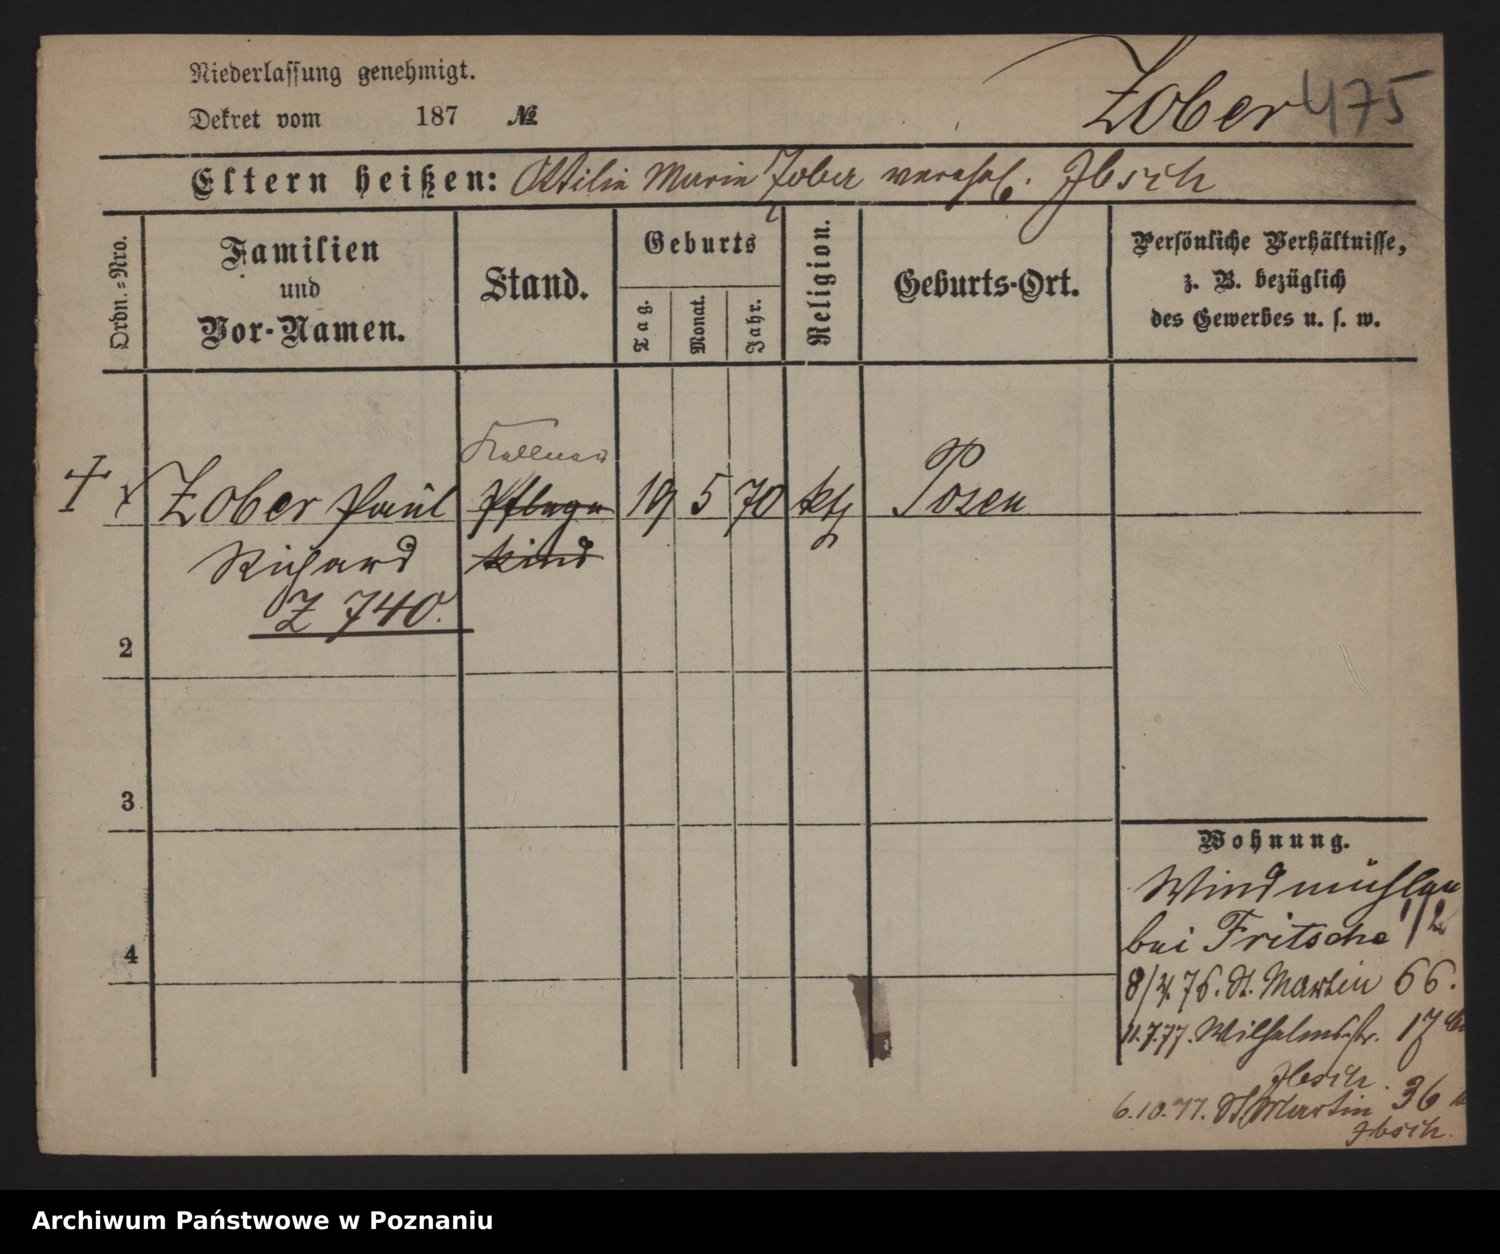 Niederlassung genehmigt.
Dekret vom 187 №
Zober 475
Eltern heißen: Ottilie Marie Zober verehel. Ibsch
Ordn.-Nro.
Familien und Vor-Namen.
Stand.
Geburts
Tag.
Monat.
Jahr.
Religion.
Geburts-Ort.
Persönliche Verhältnisse,
z. B. bezüglich
des Gewerbes u. s. w.
Kellner
Zober Paul Pflege 19 5 70 kth Posen
Richard kind
Z 740.
2
3
4
Wohnung.
Windmühlen
bei Fritsche 1/2
8/4.76. St. Martin 66.
11.7.77. Wilhelmstr. 17
Ibsch.
6.10.77. St Martin 36
Ibsch.
Archiwum Państwowe w Poznaniu